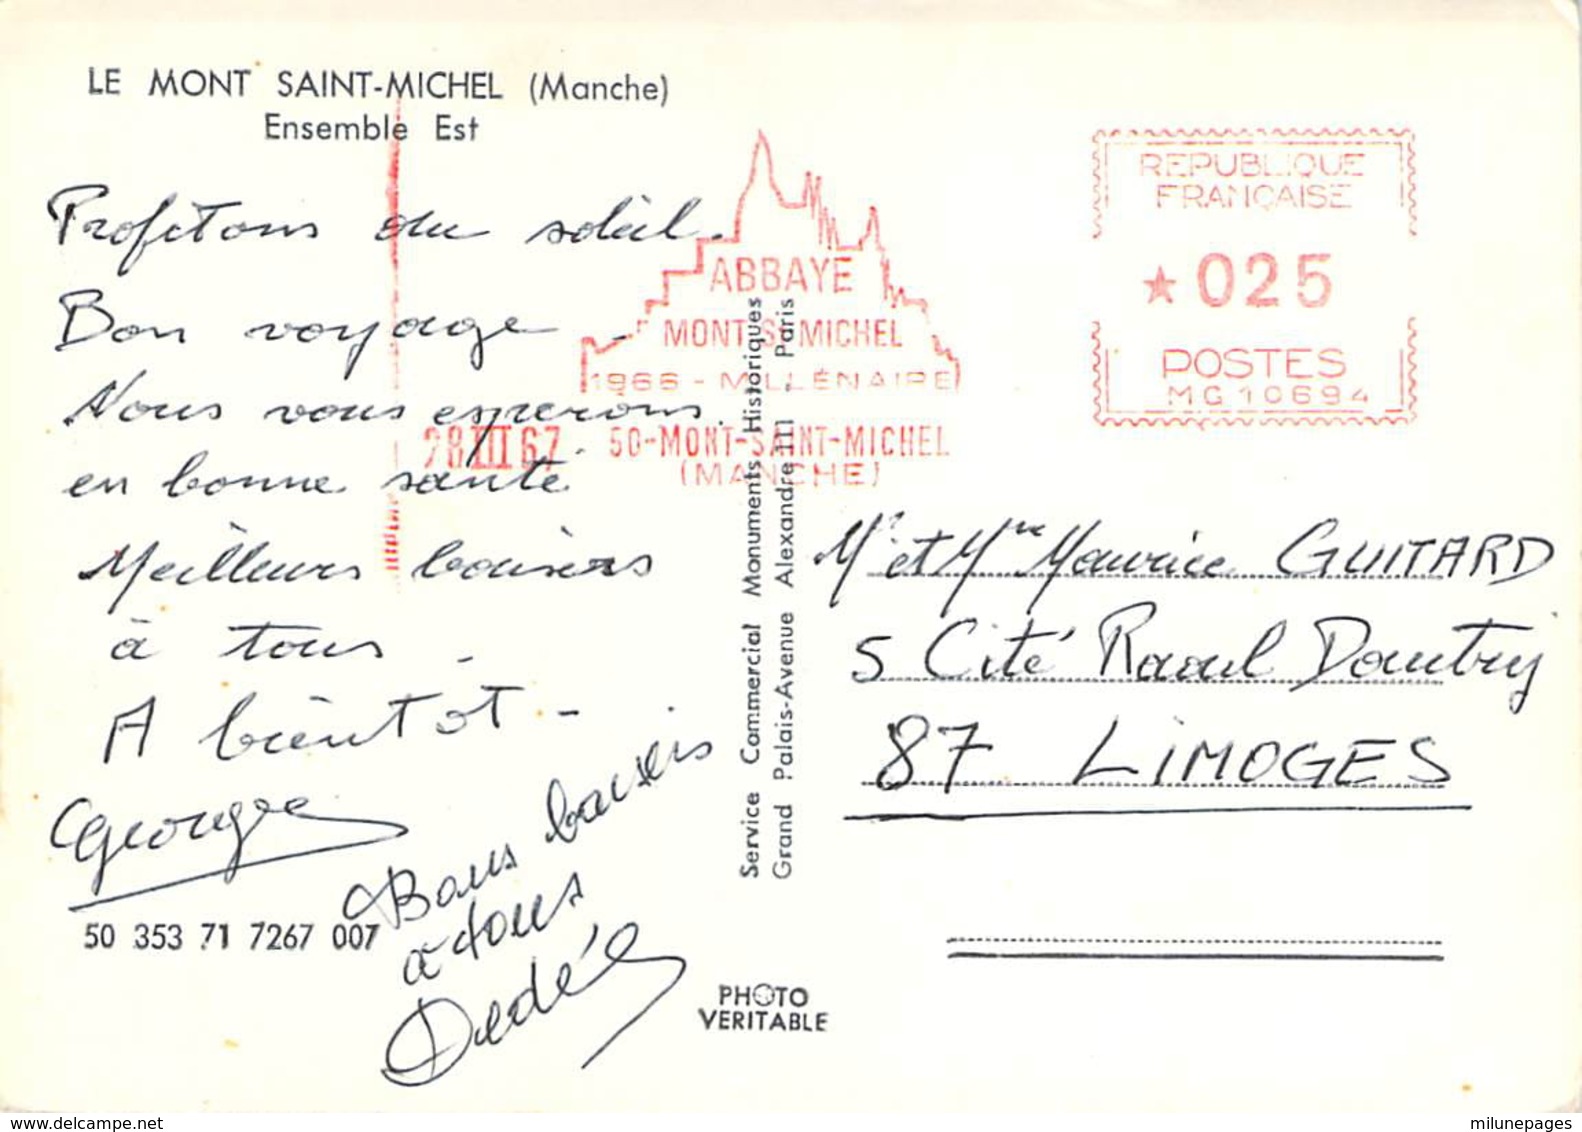 LE MONT SAINT-MICHEL (Manche)
Ensemble Est
Profitons du soleil.
Bon voyage.
Nous vous esperons
en bonne santé
Meilleurs baisers
à tous.
A bientôt -
Georges
Bons baisers
a tous
Dedé
50 353 71 7267 007
ABBAYE
MONT St MICHEL
1966 - MILLÉNAIRE
28 III 67
50-MONT-SAINT-MICHEL
(MANCHE)
Service Commercial Monuments Historiques
Grand Palais-Avenue Alexandre III - Paris
PHOTO
VERITABLE
REPUBLIQUE
FRANÇAISE
★ 025
POSTES
MG 10694
Mr et Mme Maurice GUITARD
5 Cité Raoul Dautry
87 LIMOGES
milunepages